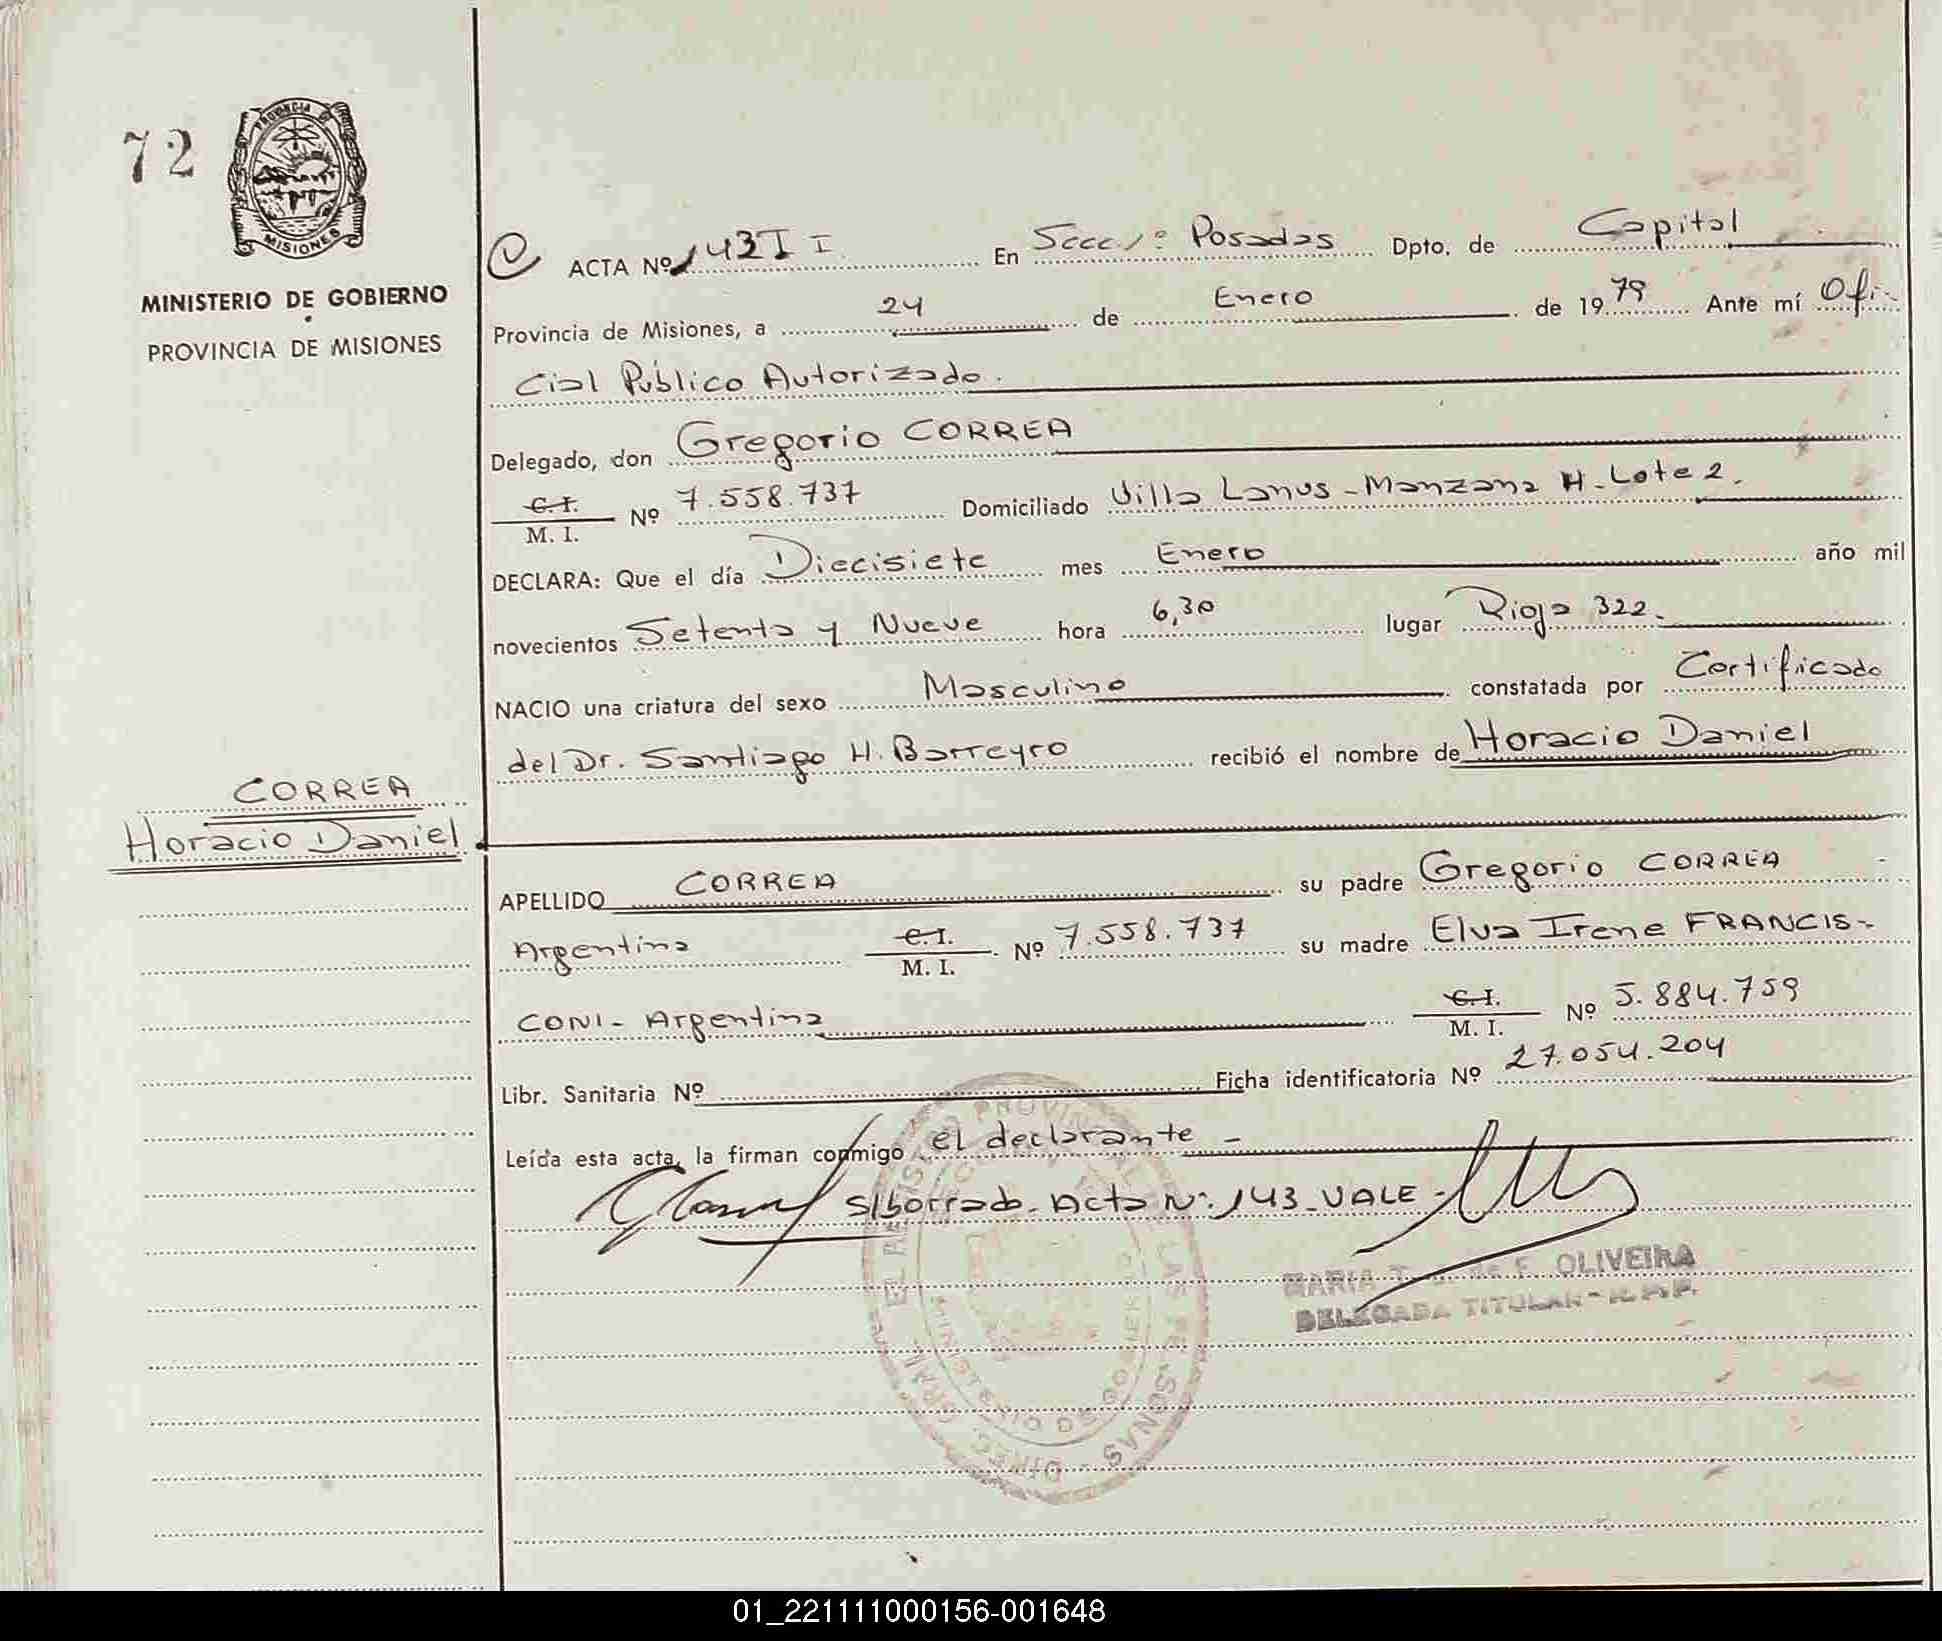 72
PROVINCIA DE
MISIONES
MINISTERIO DE GOBIERNO
PROVINCIA DE MISIONES
ACTA Nº 143 I I En Secc. 1º Posadas Dpto. de Capital
Provincia de Misiones, a 24 de Enero de 1979 Ante mí Ofi-
cial Público Autorizado.
Delegado, don Gregorio CORREA
C.I. / M. I. Nº 7.558.737 Domiciliado Villa Lanus - Manzana H - Lote 2.
DECLARA: Que el día Diecisiete mes Enero año mil
novecientos Setenta y Nueve hora 6,30 lugar Rioja 322.
NACIO una criatura del sexo Masculino constatada por Certificado
del Dr. Santiago H. Barreyro recibió el nombre de Horacio Daniel
CORREA
Horacio Daniel
APELLIDO CORREA su padre Gregorio CORREA
Argentina C.I. / M. I. Nº 7.558.737 su madre Elva Irene FRANCIS-
CONI - Argentina C.I. / M. I. Nº 5.884.759
Libr. Sanitaria Nº Ficha identificatoria Nº 27.054.204
Leída esta acta, la firman conmigo el declarante -
S/borrado. Acta Nº: 143 - VALE -
MARIA T. F. OLIVEIRA
DELEGADA TITULAR - R.P.P.
DIREC. GRAL. PROVINCIAL DE LAS PERSONAS
MINISTERIO DE GOBIERNO
01_221111000156-001648